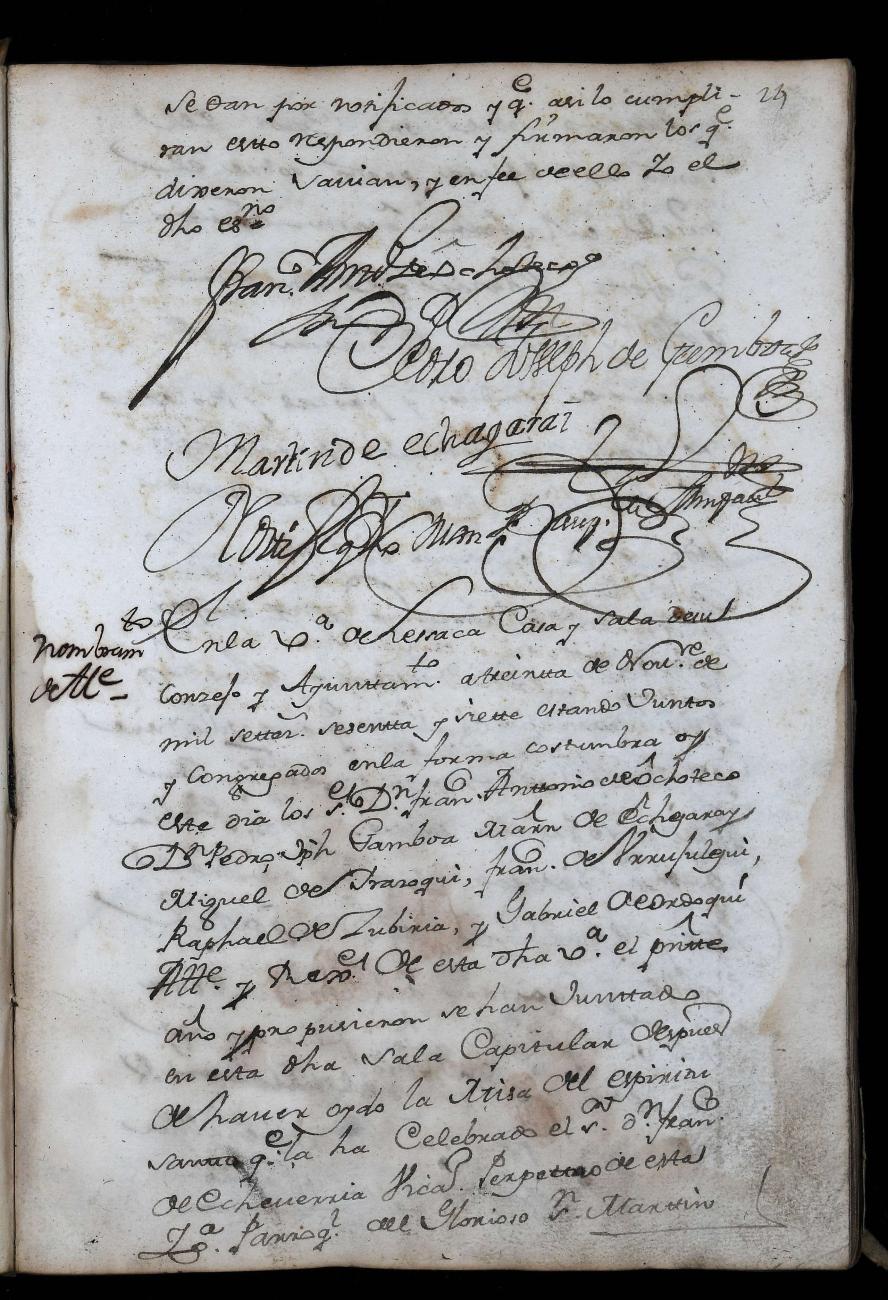 24
se dan por notificados y q.e asi lo cumpli-
ran estto respondieron y firmaron los q.e
dixeron savian, y en fee de ello Yo el
dho es.no
Fran.co Antt.o de Ochoteco
Pedro Joseph de Gamboa
Martin de echagarai
Nombram.to
de Alle
En la v.a de Lesaca Casa y sala de su
Conzejo y Ayunttam.to a treinta de Nov.re de
mil settez.s sesentta y siette estando Junttos
y Congregados en la forma costumbra oy
este dia los s.res D.n fran.co Antonio de Ochoteco
D.n Pedro Jph Gamboa Marn de Echigaray
Miguel de Yrazoqui, fran.co de
Raphael de Zubiria, y Gabriel de Ordoqui
Alle. y Rexi.s de esta dha v.a el pnte
año y propusieron se han Junttado
en esta dha sala Capitular despues
de haver oydo la Misa del espiritu
santto q.e la ha Celebrado el s.r d.n fran.co
de Echeverria Vica.o Perpettuo de esta
Parroq.l del Glorioso S.n Marttin